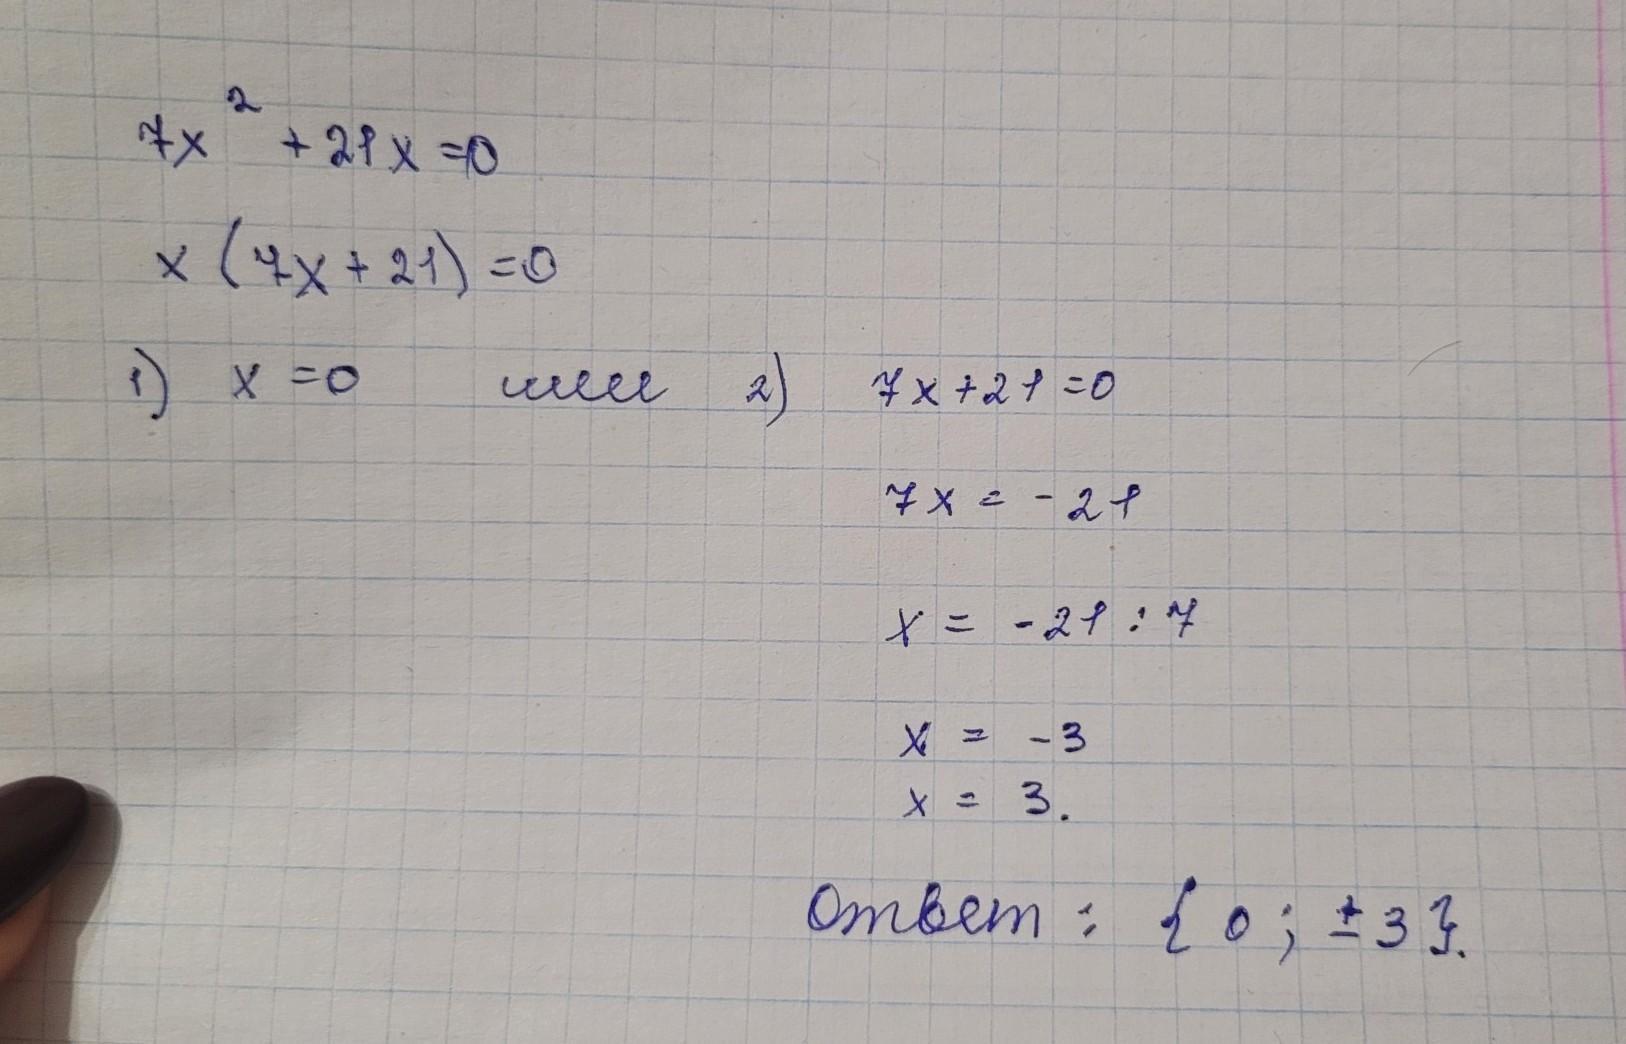 7x² + 21x = 0
x (7x + 21) = 0
1) x = 0 или 2) 7x + 21 = 0
7x = - 21
x = - 21 : 7
x = - 3
x = 3.
Ответ : { 0 ; ± 3 }.